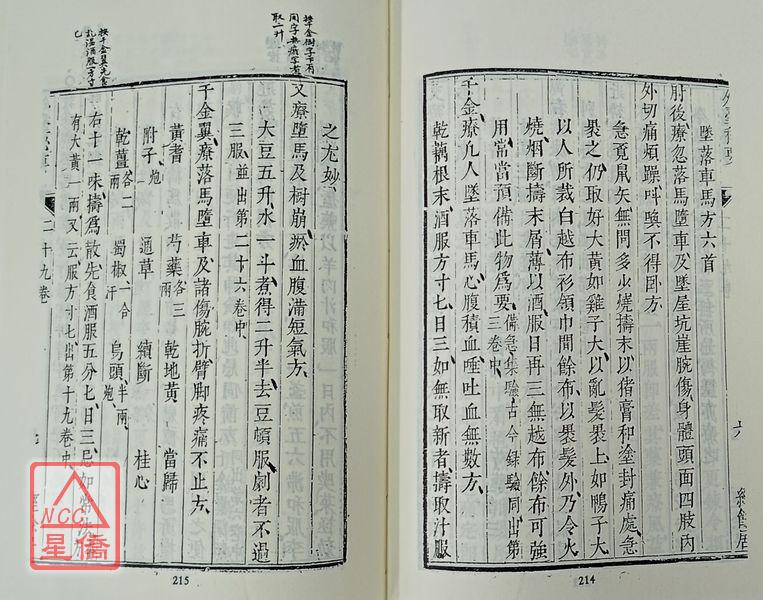 墜落車馬方六首
肘後療忽落馬墮車及墜屋坑崖腕傷身體頭面四肢內
外切痛煩躁叫喚不得臥方
急覓鼠矢無問多少燒擣末以猪膏和塗封痛處急
裹之仍取好大黃如雞子大以亂髮裹上如鴨子大
以人所裁白越布衫領巾間餘布以裹髮外乃令火
燒烟斷擣末屑薄以酒服日再三無越布餘布可強
用常當預備此物為要備急集驗古今録驗同出第
三卷中
千金療凡人墜落車馬心腹積血唾吐血無數方
乾藕根末酒服方寸七日三如無取新者擣取汁服
六
經餘居
214
之尤妙
又療墮馬及樹崩瘀血腹滿短氣方
大豆五升水一斗煮得二升半去豆頓服劇者不過
三服並出第二十六卷中
千金翼療落馬墮車及諸傷腕折臂脚疼痛不止方
黃耆 芍藥各三兩 乾地黃 當歸
附子炮 通草 續斷 桂心
乾薑各二兩 蜀椒一合汗 烏頭半兩炮
右十一味擣為散先食酒服五分七日三忌如常法
有大黃一兩又云服方寸七出第十九卷中
二十九卷
215
NCC
星僑